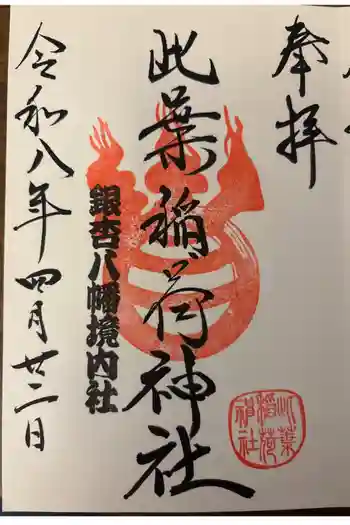 奉拝
此葉稲荷神社
銀杏八幡境内社
令和八年四月廿二日
此葉
稲荷
神社